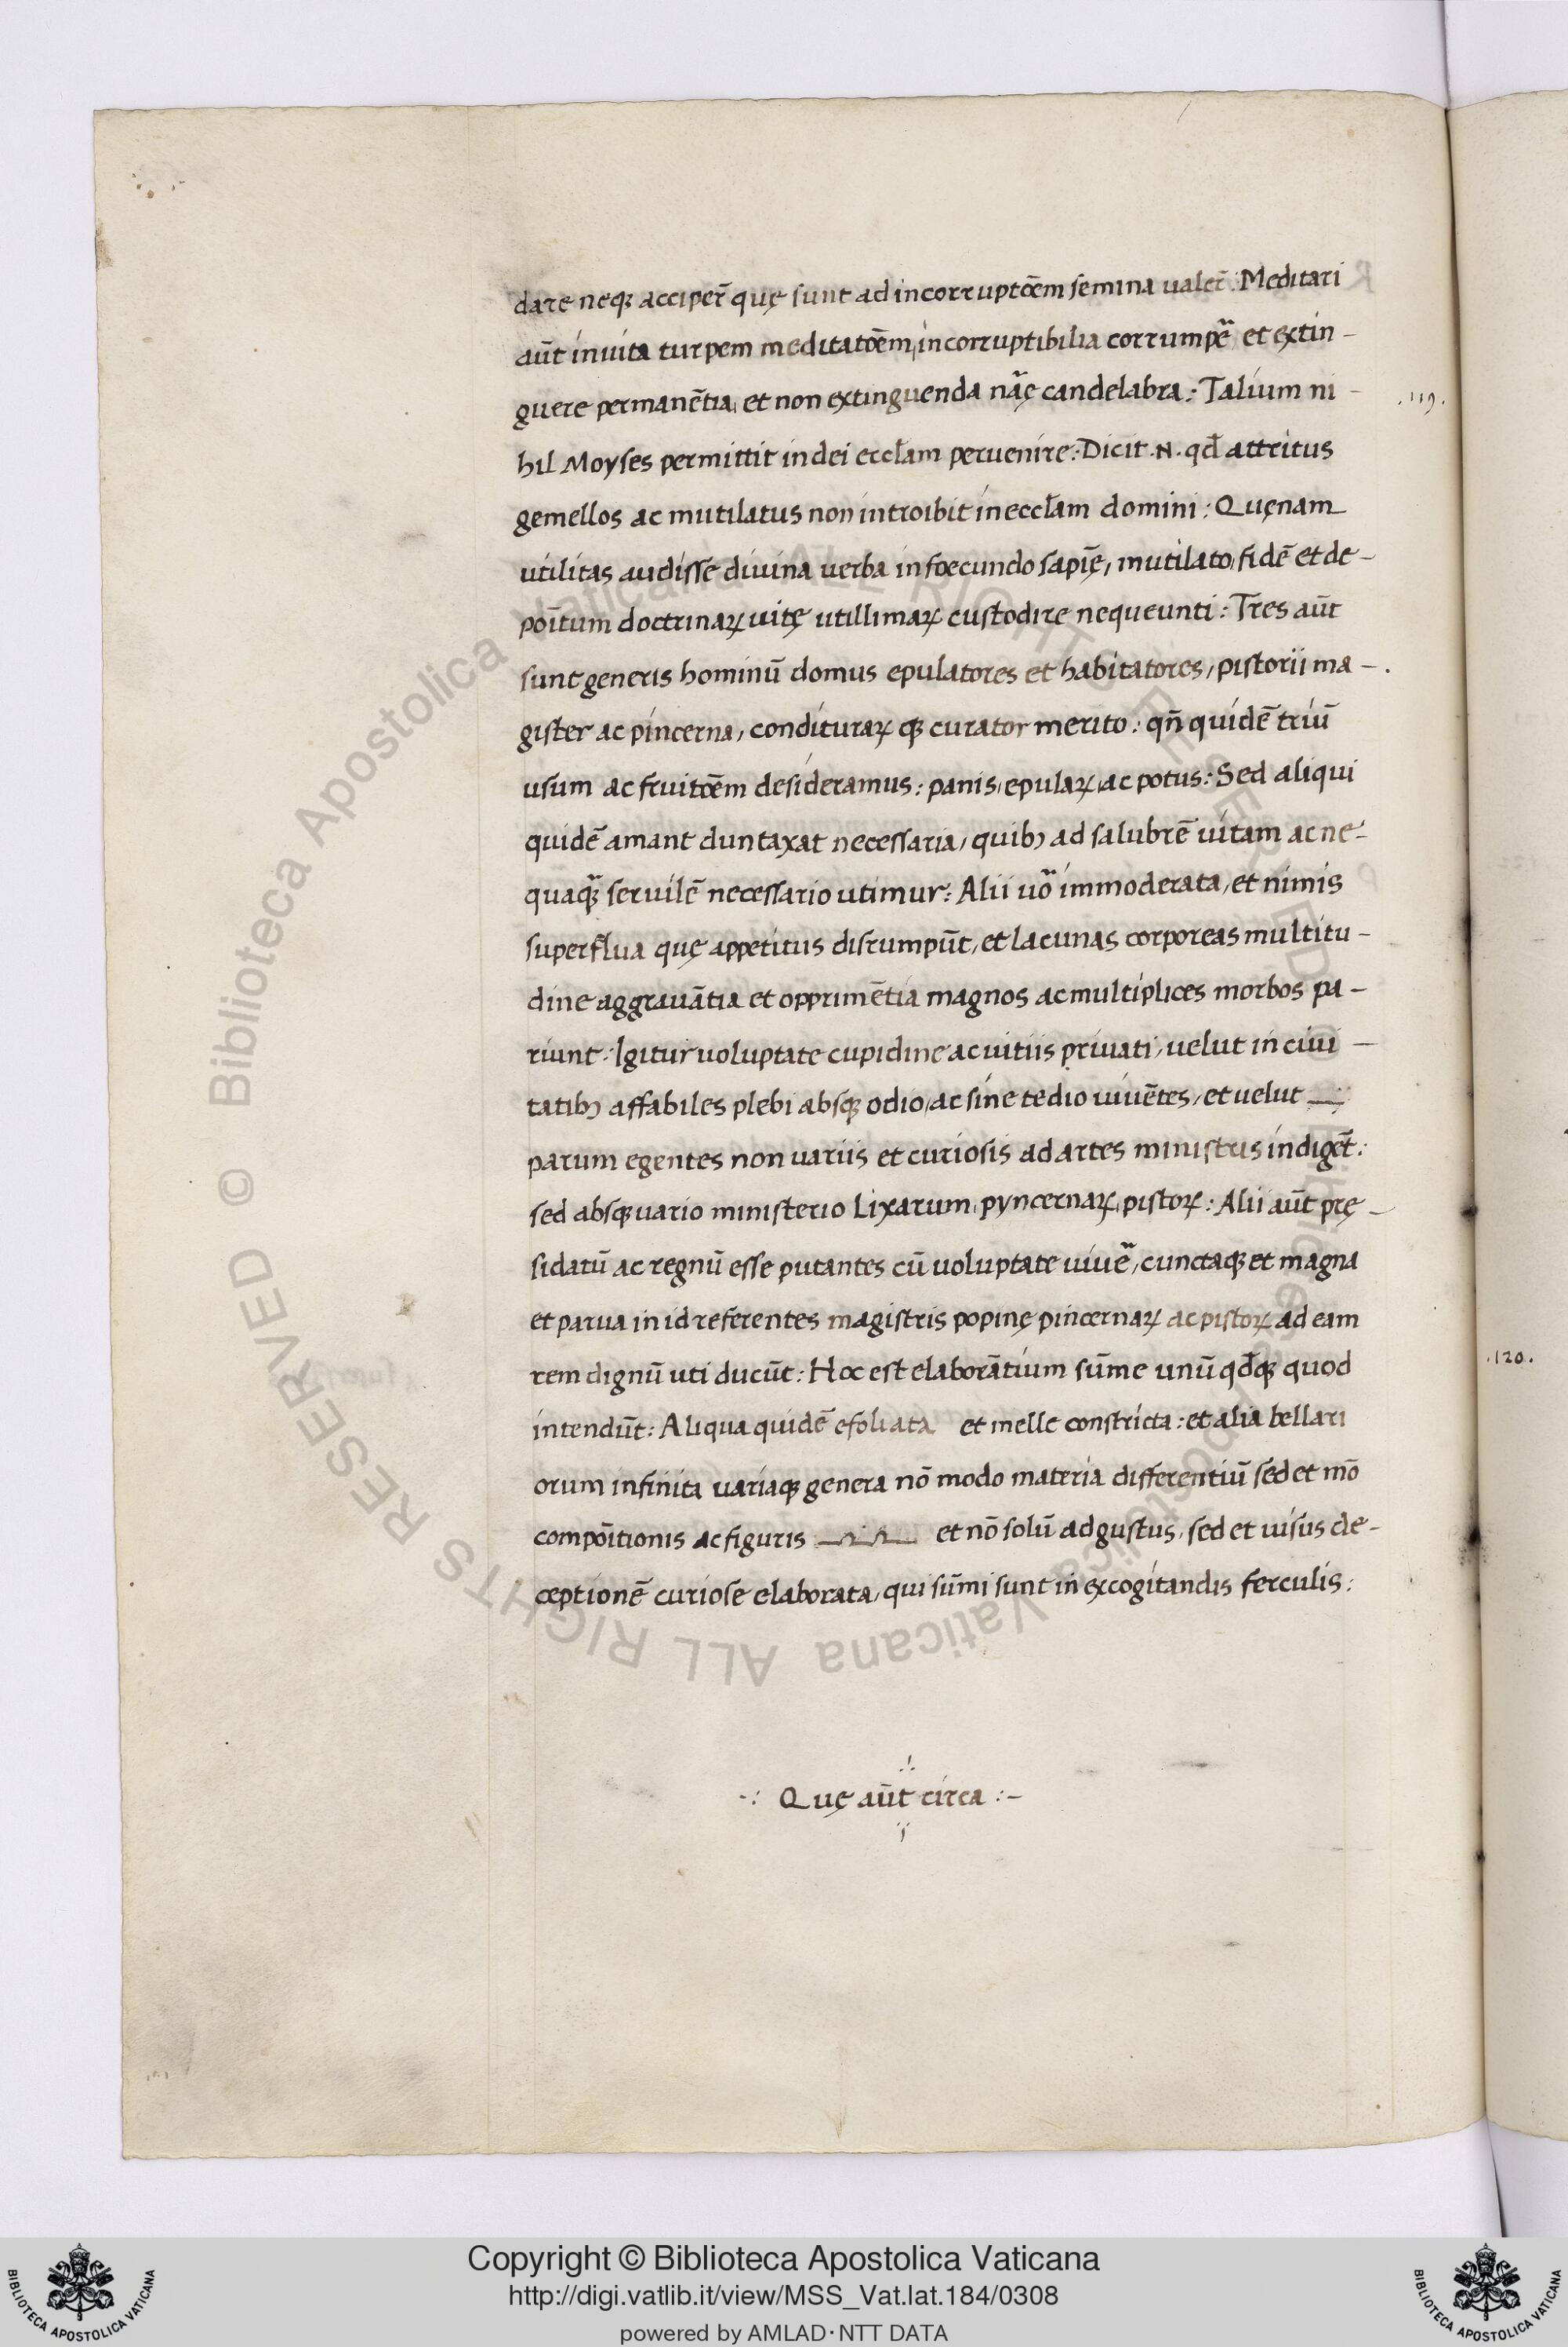 dare neqꝫ acciper̄ quę sunt ad incorruptōem semina valer̄: Meditari
aūt in vita turpem meditatōem, incorruptibilia corrumpe᷑ et extin-
guere permanētia, et non extinguenda na᷑ę candelabra: Talium ni-
.119.
hil Moyses permittit in dei eccl̄am pervenire: Dicit .N. qd̄ attritus
gemellos ac mutilatus non introibit in eccl̄am domini: Quęnam
utilitas audisse divina verba infoecundo sapīę, mutilato, fidē et de-
poītum doctrinaꝝ vitę utillimaꝝ custodire nequeunti: Tres aūt
sunt generis hominū domus epulatores et habitatores, pistorii ma-.
gister ac pincerna, condituraꝝ qꝫ curator merito: qn̄ quidē triū
usum ac fruitōem desideramus: panis, epulaꝝ, ac potus: Sed aliqui
quidē amant duntaxat necessaria, quibꝫ ad salubrē vitam ac ne-
quaqꝫ᷑ servilē necessario utimur: Alii vo᷑ immoderata, et nimis
superflua quę appetitus disrumpūt, et lacunas corporeas multitu-
dine aggravātia et opprimētia magnos ac multiplices morbos pa-
riunt: Igitur voluptate cupidine ac vitiis privati, velut in civi-
tatibꝫ affabiles plebi absqꝫ odio, ac sine tedio vivētes, et velut
parum egentes non variis et curiosis ad artes ministris indigēt:
sed absqꝫ vario ministerio Lixarum, pyncernaꝝ, pistoꝝ: Alii aūt prę-
sidatū ac regnū esse putantes cū voluptate vive᷑, cunctaqꝫ et magna
et parva in id referentes magistris popinę pincernaꝝ ac pistoꝝ ad eam
rem dignū uti ducūt: Hoc est elaborātium sūme unū qd̄qꝫ quod
.120.
intendūt: Aliqua quidē efoliata et melle constricta: et alia bellari
orum infinita variaqꝫ genera nō modo materia differentiū sed et mō
compoītionis ac figuris et nō solū ad gustus, sed et visus de-
ceptionē curiose elaborata, qui sūmi sunt in excogitandis ferculis:
-: Quę aūt circa :-
Copyright © Biblioteca Apostolica Vaticana
http://digi.vatlib.it/view/MSS_Vat.lat.184/0308
powered by AMLAD·NTT DATA
BIBLIOTECA APOSTOLICA VATICANA
BIBLIOTECA APOSTOLICA VATICANA
© Biblioteca Apostolica Vaticana ALL RIGHTS RESERVED © Biblioteca Apostolica Vaticana ALL RIGHTS RESERVED